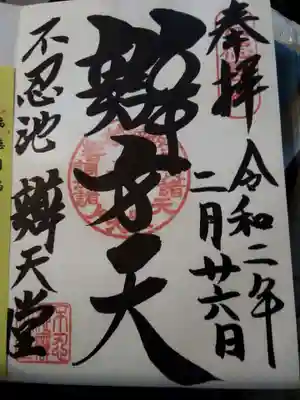 奉拝
令和二年
二月廿六日
辯才天
不忍池
辯天堂